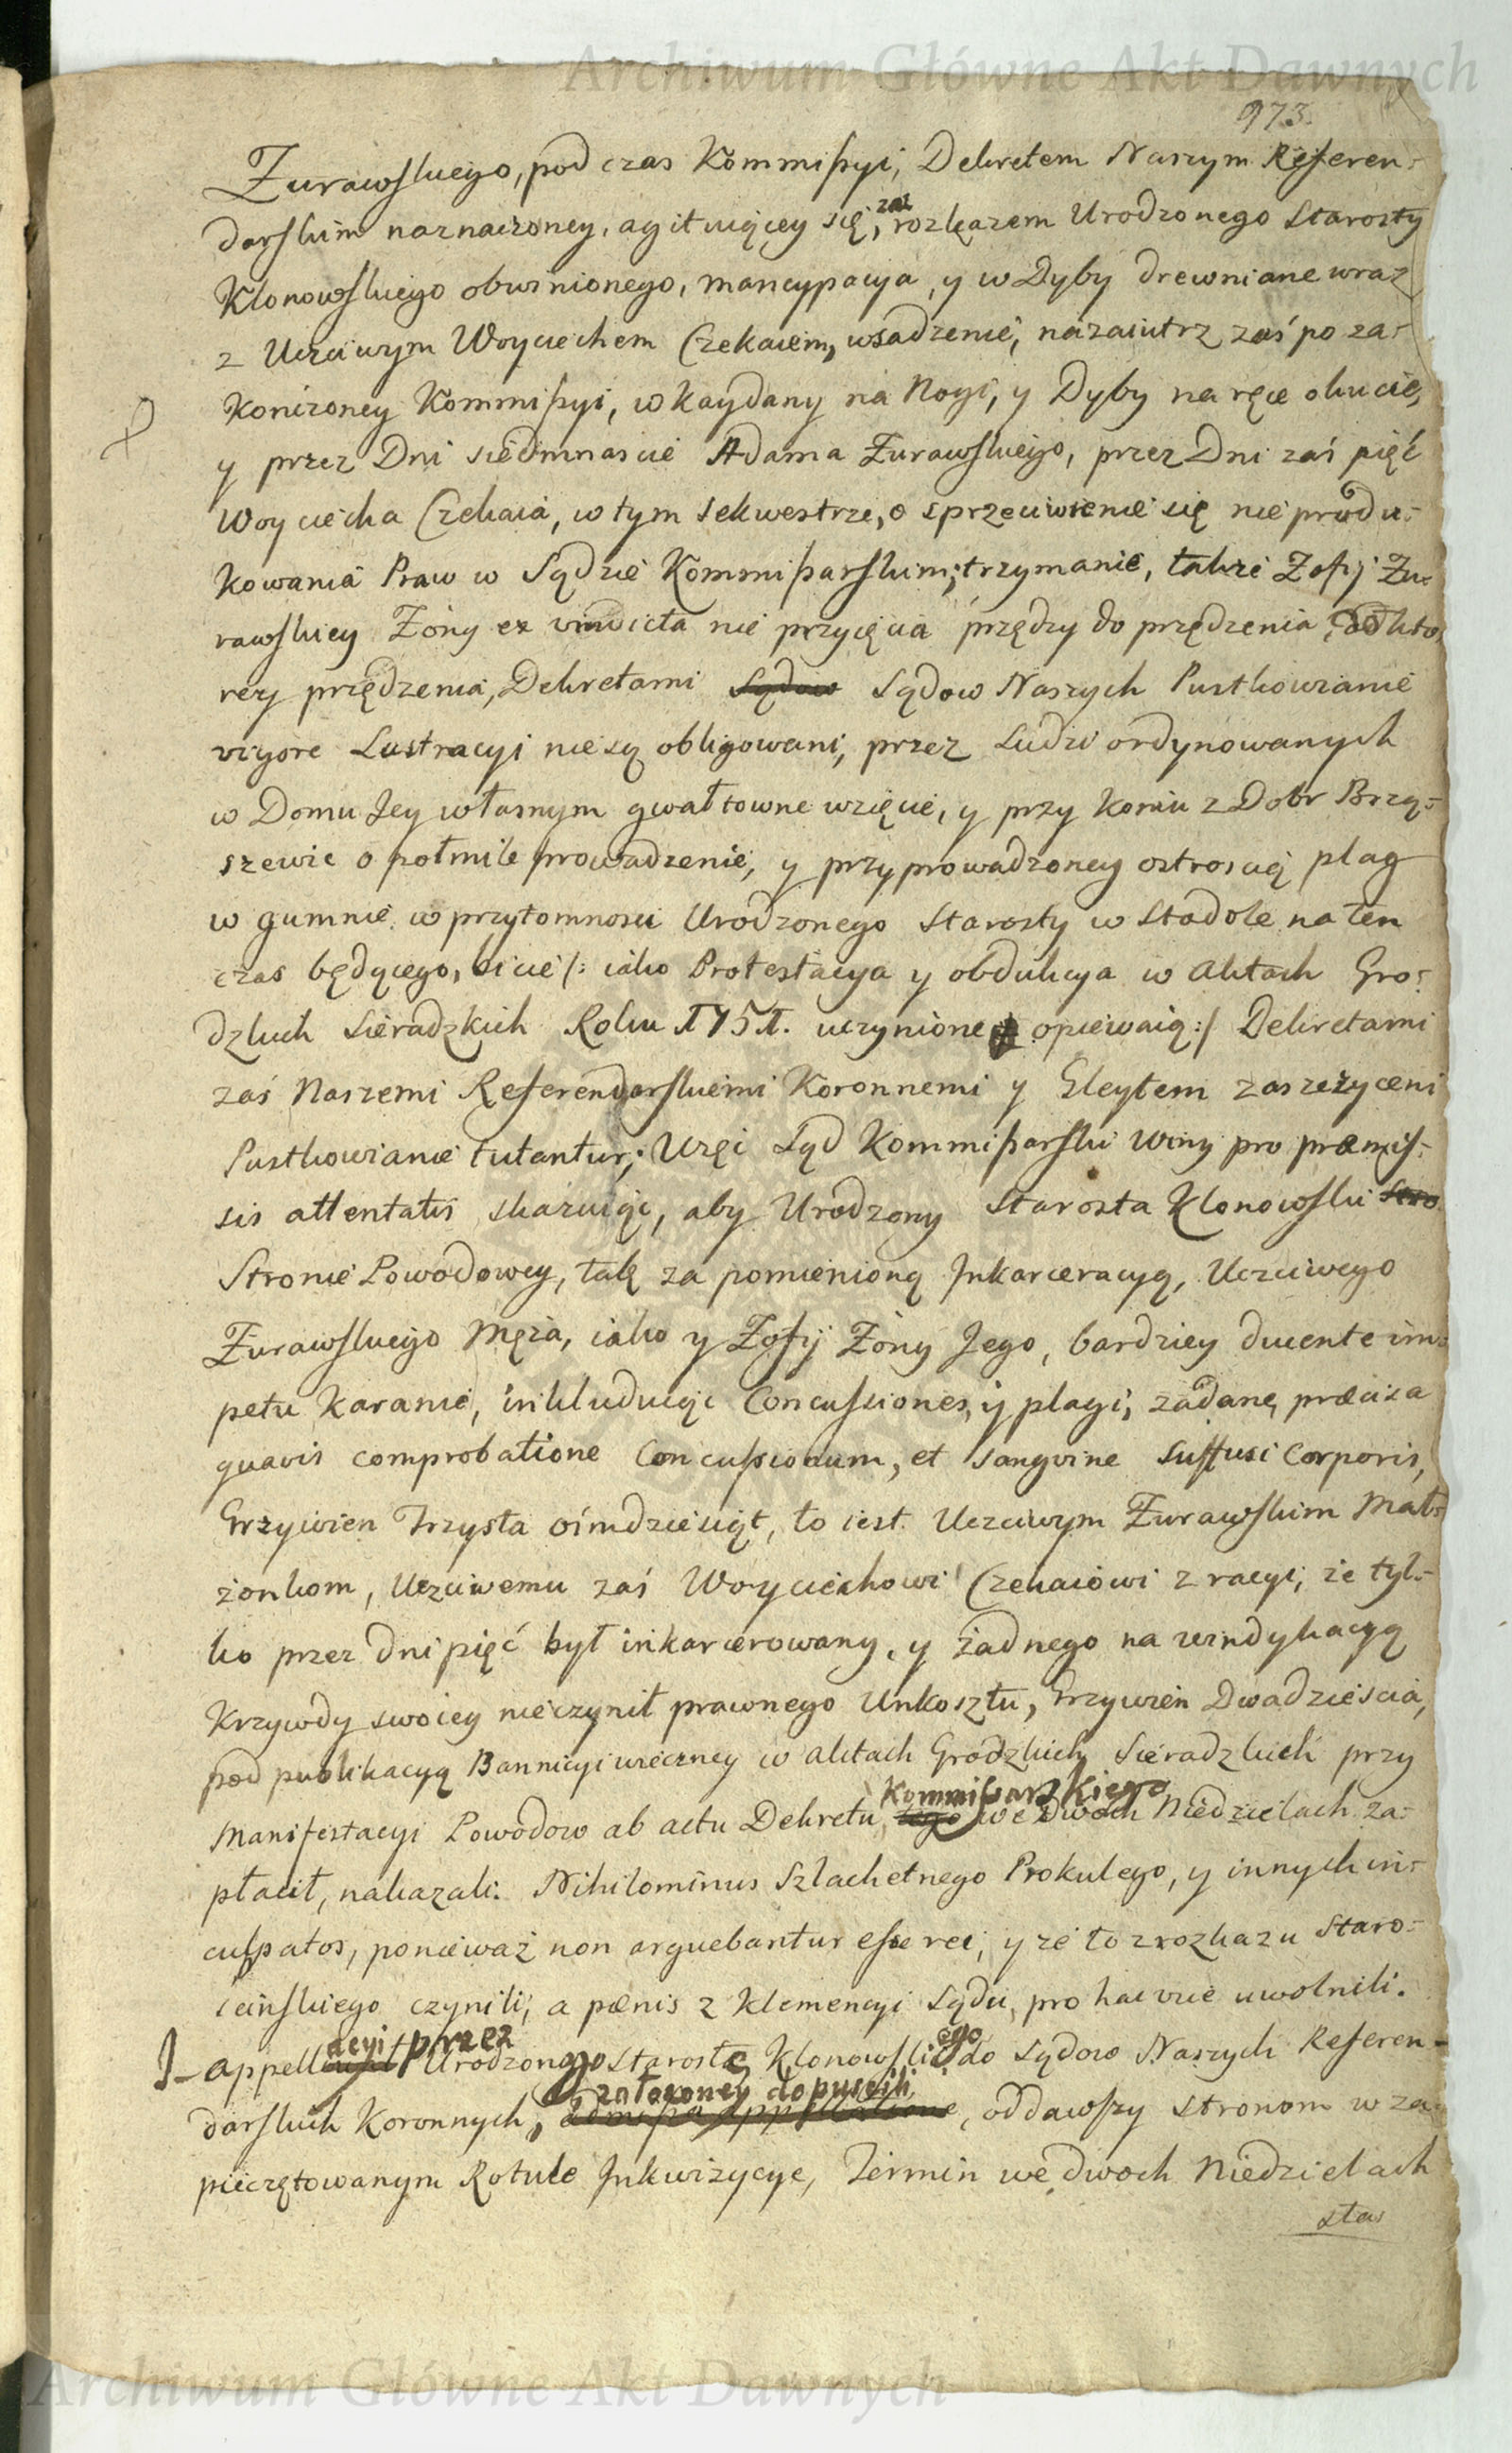 Archiwum Główne Akt Dawnych
973.
Żurawskiego, pod czas Kommissyi, Dekretem Naszym Referen-
darskim naznaczoney, agituiącey się, zaś rozkazem Urodzonego Starosty
Klonowskiego obwinionego, mancypacya, y w Dyby drewniane wraz
z Uczciwym Woyciechem Czekaiem, wsadzenie, nazaiutrz zaś po za-
kończoney Kommissyi, w kaydany na Nogi, y Dyby na ręce okucie,
y przez Dni siedmnascie Adama Żurawskiego, przez Dni zaś pięć
Woyciecha Czekaia, w tym sekwestrze, o sprzeciwienie się nie produ-
kowania Praw w Sądzie Kommissarskim; trzymanie, także Zofij Żu-
rawskiey Żony ex vindicta nie przyięcia przędzy do przędzenia, od kto-
rey przędzenia, Dekretami Sądow Sądow Naszych Pustkowianie
vigore Lustracyi nie są obligowani, przez Ludzi ordynowanych
w Domu Jey własnym gwałtowne wzięcie, y przy Koniu z Dobr Brzą-
szewic o połmile prowadzenie, y przyprowadzoney ostroscią plag
w gumnie w przytomnosci Urodzonego Starosty w Stodole na ten
czas będącego, bicie /: iako Protestacya y obdukcya w Aktach Gro-
dzkich Sieradzkich Roku 1751. uczynione opiewaią :/ Dekretami
zaś Naszemi Referendarskiemi Koronnemi y Gleytem zaszczyceni
Pustkowianie tutantur; Uręi Sąd Kommissarski winy pro præmis-
sis attentatis skazuiąc, aby Urodzony Starosta Klonowski Stro
Stronie Powodowey, tak za pomienioną Jnkarceracyą, Uczciwego
Żurawskiego Męża, iako y Zofij Żony Jego, bardziey ducente im-
petu karanie, inkluduiąc Concussiones, y plagi, zadane, præcisa
quavis comprobatione Concussionum, et sangvine suffusi Corporis,
Grzywien Trzysta ośmdziesiąt, to iest Uczciwym Żurawskim Mał-
żonkom, Uczciwemu zaś Woyciechowi Czekaiowi z racyi, że tyl-
ko przez dni pięć był inkarcerowany, y żadnego na windykacyą
Krzywdy swoiey nie czynił prawnego Unkosztu, Grzywien Dwadziescia,
pod publikacyą Bannicyi wieczney w Aktach Grodzkich Sieradzkich przy
Manifestacyi Powodow ab actu Dekretu tego Kommissarskiego we Dwoch Niedzielach za-
płacił, nakazali. Nihilominus Szlachetnego Prokulego, y innych in-
culpatos, ponieważ non arguebantur esse rei, y że to z rozkazu Staro-
scinskiego czynili, a pœnis z Klemencyi Sądu, pro hac vice uwolnili.
J appellacyi przez Urodzonego Starostę Klonowskiego do Sądow Naszych Referen-
darskich Koronnych, założoney dopuscili admissa appellatione, oddawszy stronom w za-
pieczętowanym Rotule Jnkwizycye, Termin we dwoch Niedzielach
sta
Archiwum Główne Akt Dawnych